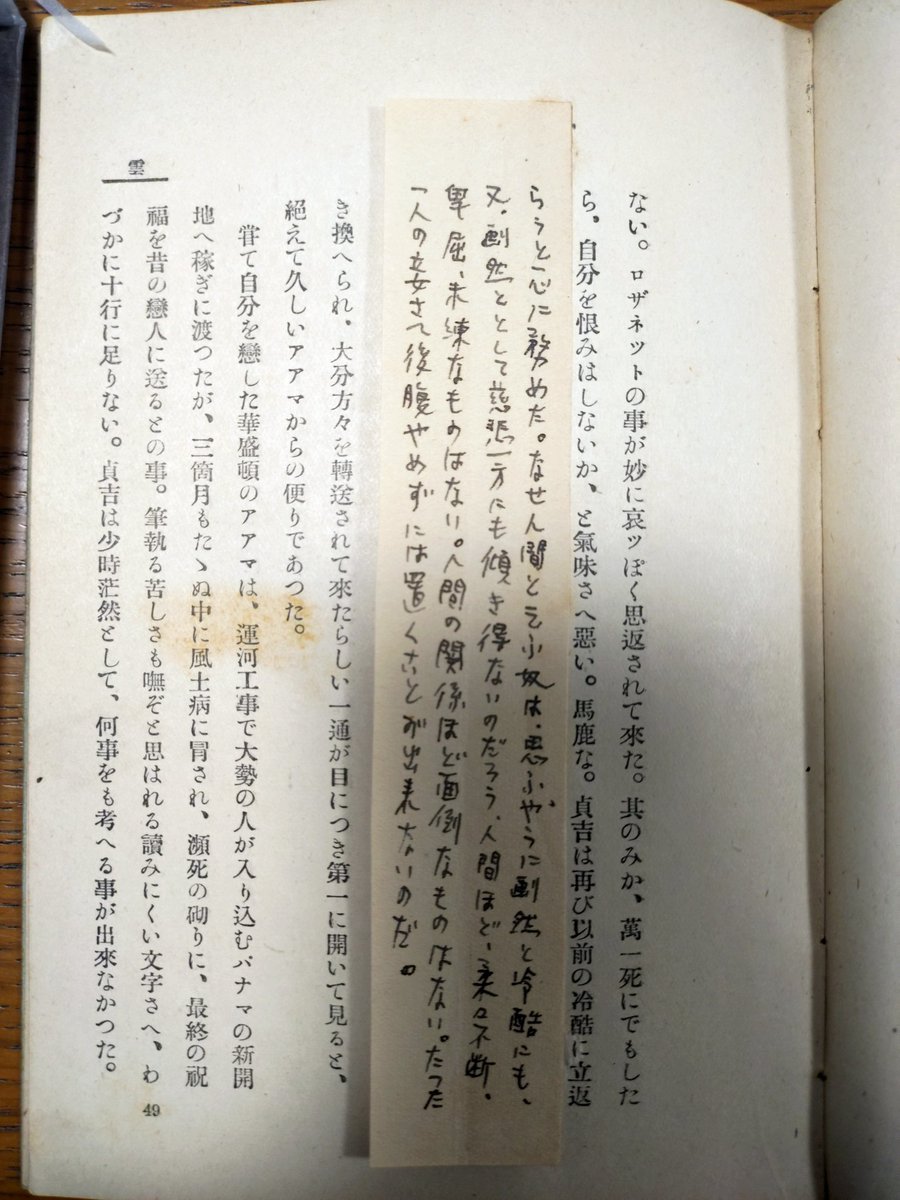 ない。ロザネットの事が妙に哀ッぽく思返されて來た。其のみか、萬一死にでもした
ら、自分を恨みはしないか、と氣味さへ惡い。馬鹿な。貞吉は再び以前の冷酷に立返
らうと一心に務めた。なせ人間と云ふ奴は、思ふやうに劃然と冷酷にも、
又、劃然ととして慈悲一方にも傾き得ないのだらう、人間ほど、柔口不断、
卑屈、未練なものはない。人間の関係ほど面倒なものはない。たった
一人の妾さへ後腹やめずには置くことが出来ないのだ。
き換へられ、大分方々を轉送されて來たらしい一通が目につき第一に開いて見ると、
絕えて久しいアアマからの便りであつた。
甞て自分を戀した華盛頓のアアマは、運河工事で大勢の人が入り込むパナマの新開
地へ稼ぎに渡つたが、三箇月もたゝぬ中に風土病に冒され、瀕死の砌りに、最終の祝
福を昔の戀人に送るとの事。筆執る苦しさも嘸ぞと思はれる讀みにくい文字さへ、わ
づかに十行に足りない。貞吉は少時茫然として、何事をも考へる事が出來なかつた。
雲
49